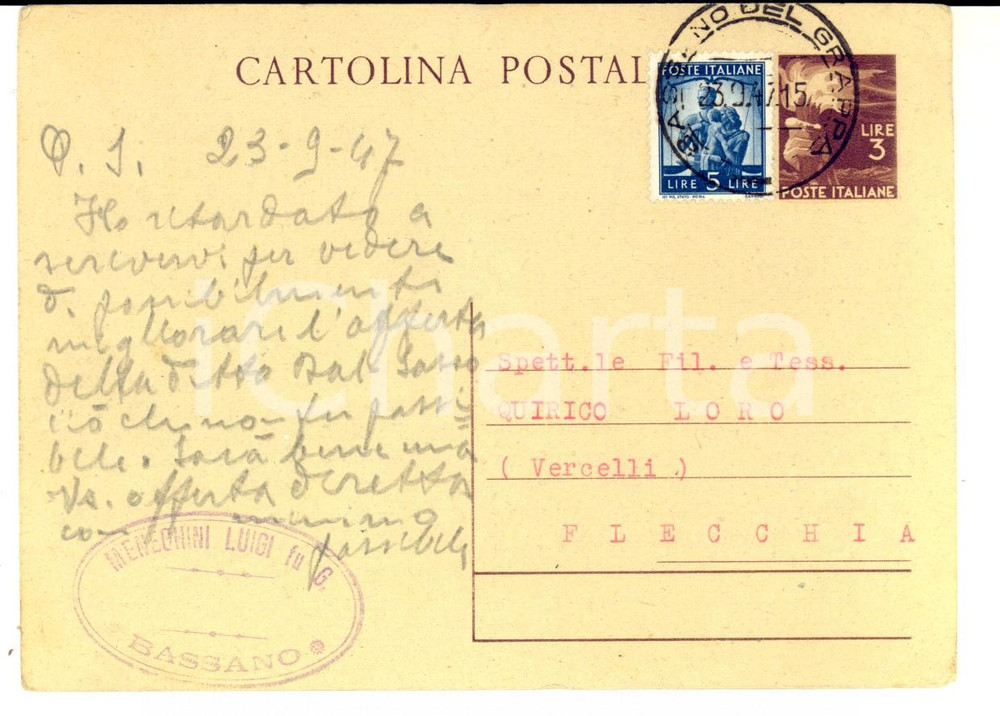 CARTOLINA POSTAL
BASSANO DEL GRAPPA
23.9.47.15
POSTE ITALIANE
LIRE 5 LIRE
LIRE
3
POSTE ITALIANE
P. S. 23-9-47
Ho ritardato a
scrivervi per vedere
di possibilmente
migliorare l'offerta
della ditta Dal Sasso
ciò che non fu possi=
bile. Sarà bene una
Vs. offerta diretta
con minimo
possibile
iCharta
Spett.le Fil. e Tess.
QUIRICO LORO
( Vercelli )
FLECCHIA
MENEGHINI LUIGI fu G.
BASSANO